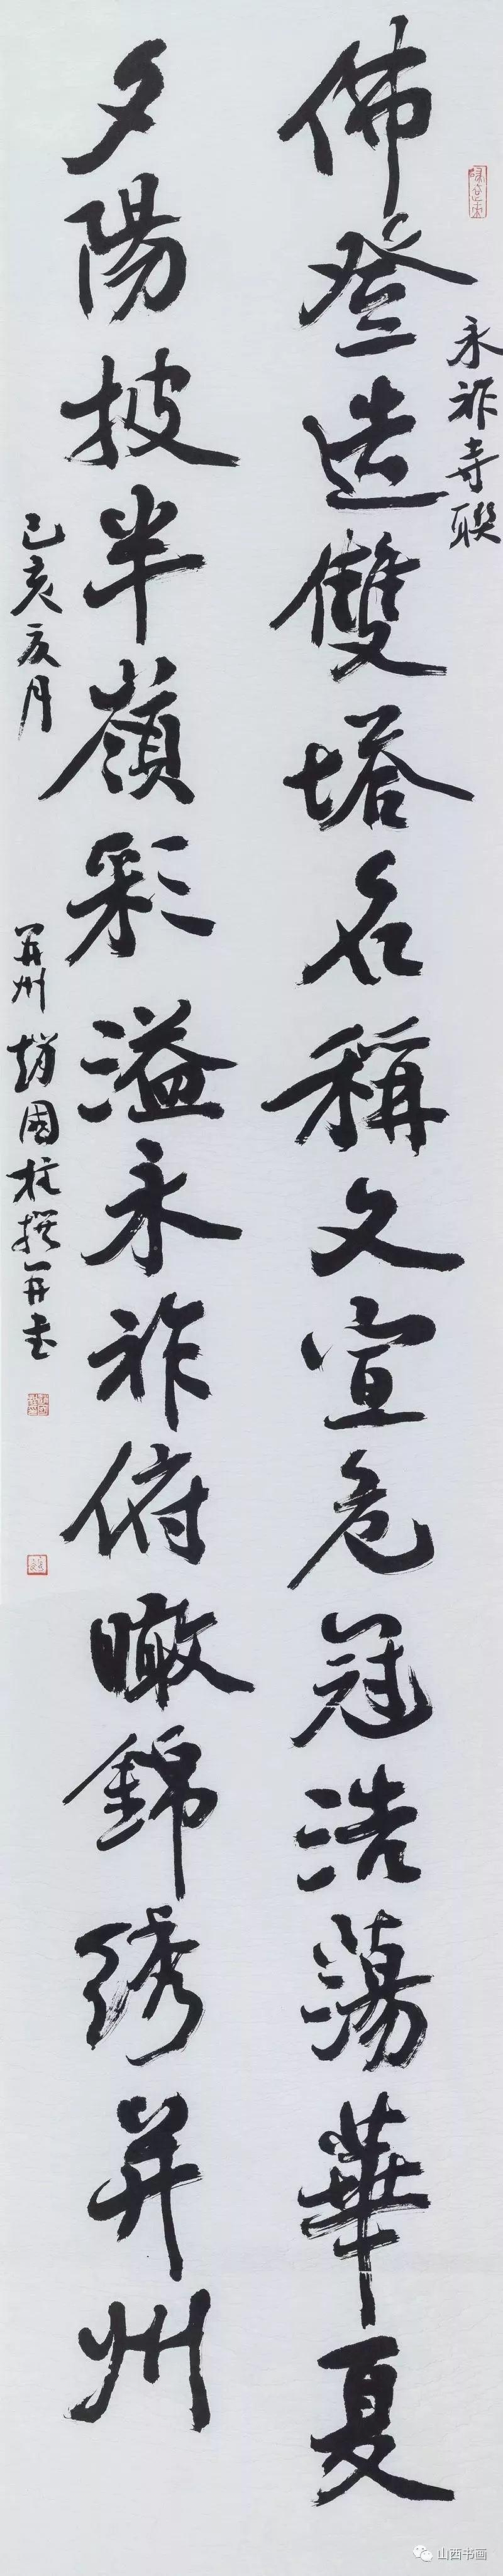 永祚寺聯
佛登造雙塔名稱文宣危冠浩蕩華夏
夕陽披半嶺彩溢永祚俯瞰錦绣并州
己亥夏月
并州趙國柱撰并書
山西书画